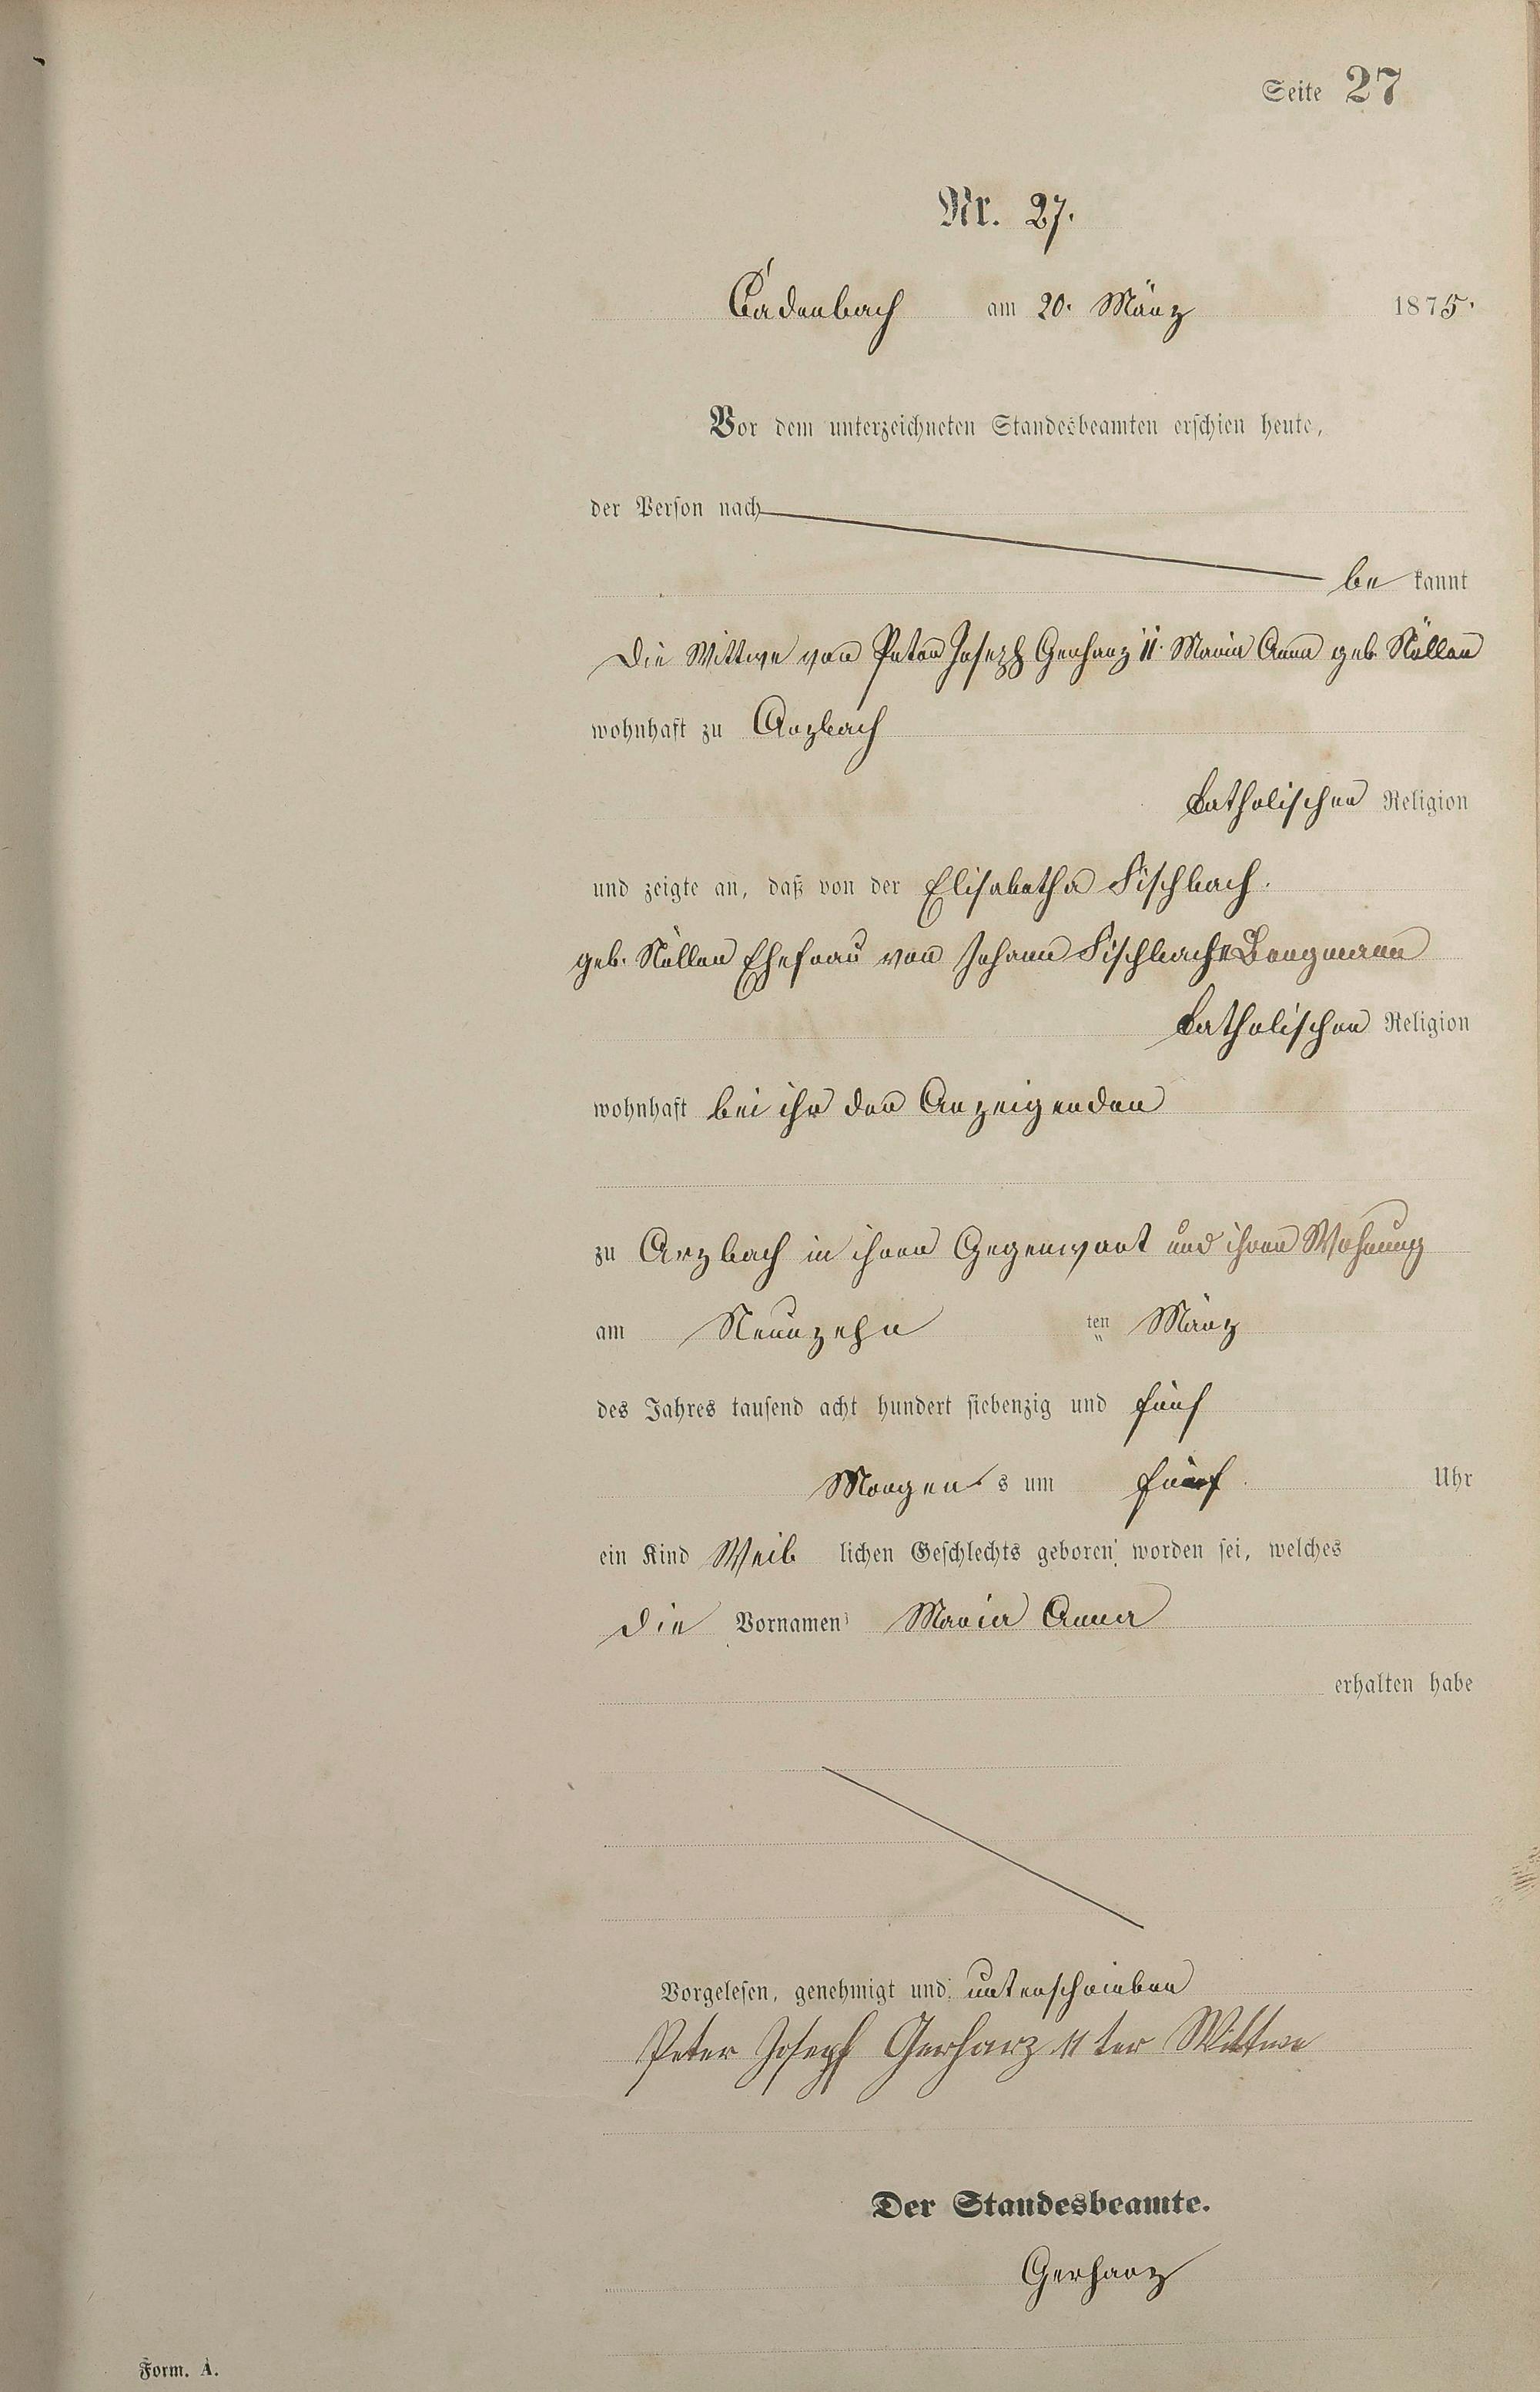 Seite 27
Nr. 27.
Cadenbach am 20. März 1875.
Vor dem unterzeichneten Standesbeamten erschien heute,
der Person nach
be kannt
Die Wittwe von Peter Joseph Gerharz II. Maria Anna geb. Nöller
wohnhaft zu Arzbach
katholischer Religion
und zeigte an, daß von der Elisabetha Fischbach.
geb. Nöller Ehefrau von Johann Fischbach Bergmann
katholischer Religion
wohnhaft bei ihr der Anzeigenden
zu Arzbach in ihrer Gegenwart und ihrer Wohnung
am Neunzehn ten März
des Jahres tausend acht hundert siebenzig und fünf
Morgen s um fünf Uhr
ein Kind Weib lichen Geschlechts geboren worden sei, welches
die Vornamen Maria Anna
erhalten habe
Vorgelesen, genehmigt und unterschrieben
Peter Joseph Gerharz II ter Wittwe
Der Standesbeamte.
Gerharz
Form. A.